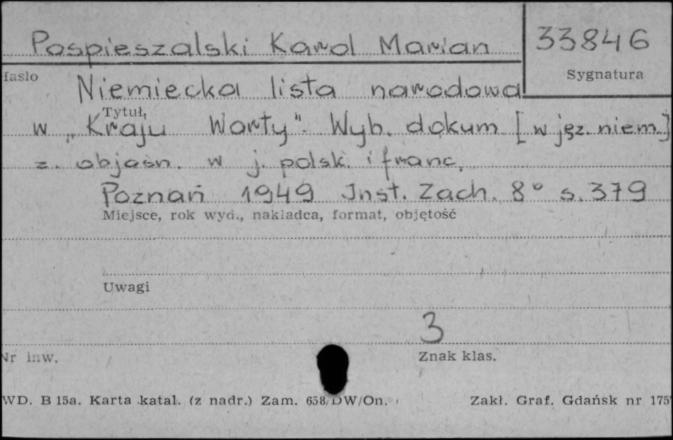 Pospieszalski Karol Marian
33846
Hasło
Sygnatura
Niemiecka lista narodowa
Tytuł,
w „Kraju Warty". Wyb. dokum [w jęz. niem.]
z. objaśn. w j. polsk. i franc,
Poznań 1949 Inst. Zach. 8° s. 379
Miejsce, rok wyd., nakładca, format, objętość
Uwagi
3
Nr inw.
Znak klas.
WD. B 15a. Karta katal. (z nadr.) Zam. 658/DW/On.
Zakł. Graf. Gdańsk nr 175